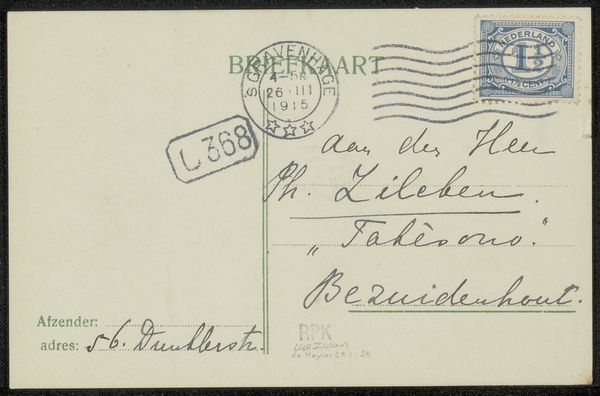 BRIEFKAART
'S GRAVENHAGE
4-5N
26 · III
1915
NEDERLAND
1½
CENT
L 368
Aan den Heer
Ph. Zilcken.
„Fabêsono."
Bezuidenhout.
Afzender:
adres: 56. Daublerstr.
RPK
(coll. Zilcken)
de Meyier (R.): 24